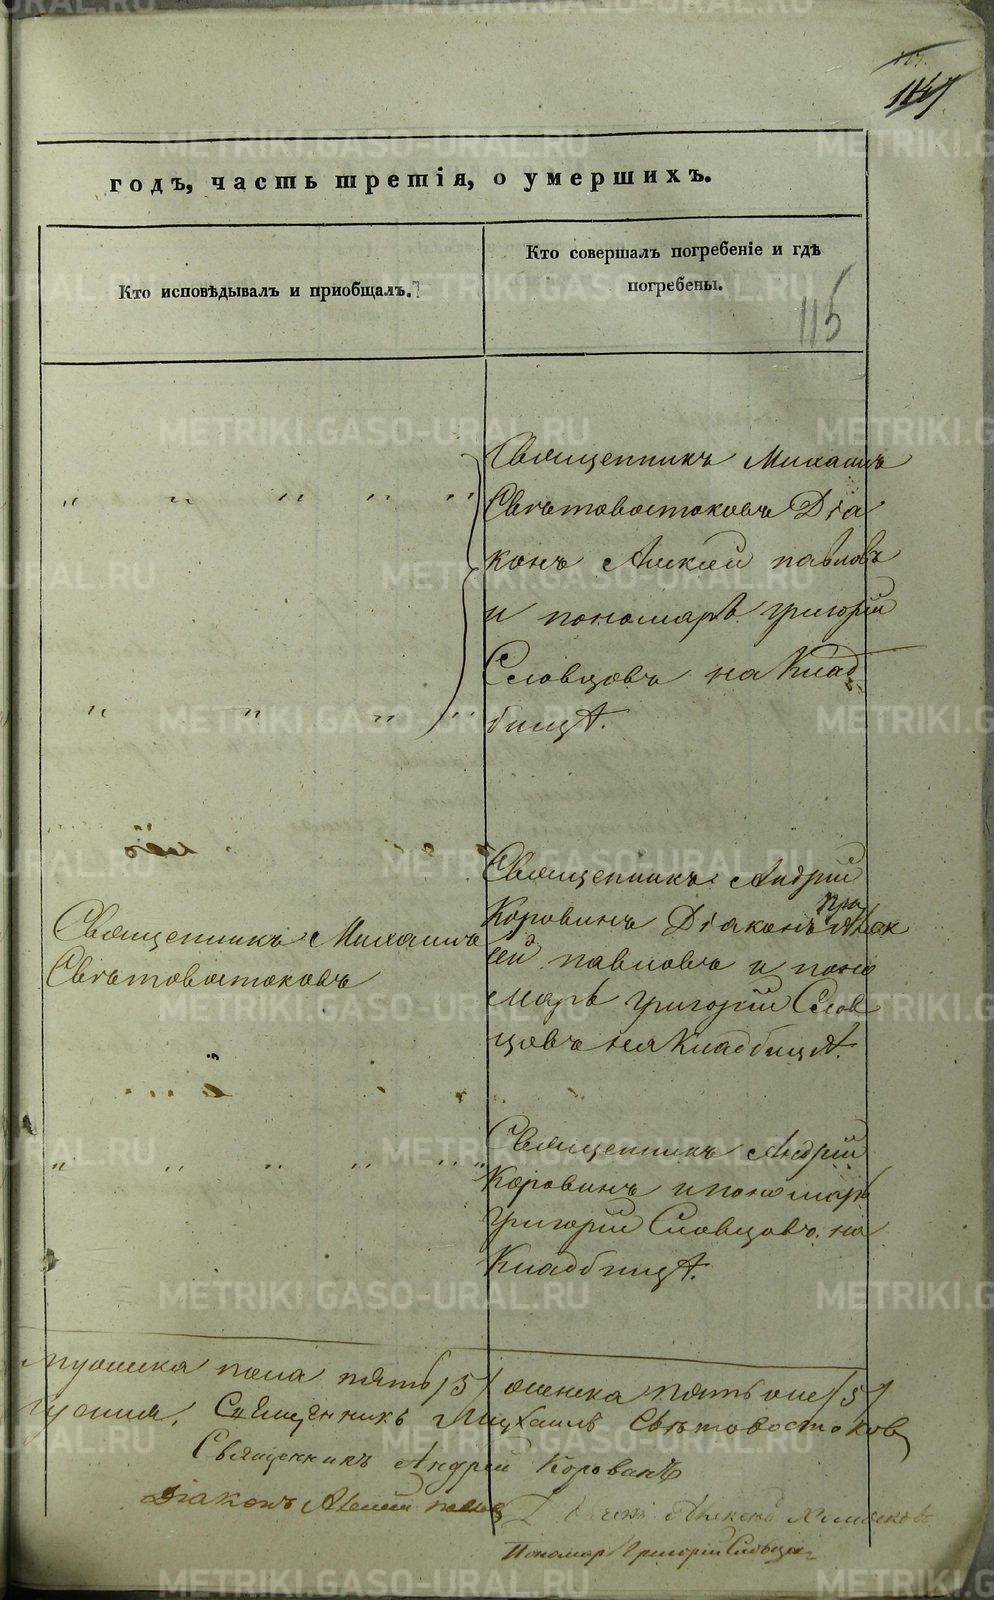 годъ, часть третія, о умершихъ.
Кто исповѣдывалъ и приобщалъ.
Кто совершалъ погребеніе и гдѣ
погребены.
115
Священникъ Михаилъ
Свѣтовостоковъ Діа
конъ Алексѣй павловъ
и пономарь григорій
Словцовъ на Клад
бищѣ.
Священникъ Михаилъ
Свѣтовостоковъ
Священникъ Андрей
Коровинъ Діаконъ Алек
сѣй павловъ и поно
марь григорій Слов
цовъ на Кладбищѣ.
Священникъ Андрей
Коровинъ и пономарь
григорій Словцовъ на
Кладбищѣ.
мужска пола пять /5/ женска пять /5/
Священникъ Михаилъ Свѣтовостоковъ
Священникъ Андрей Коровинъ
Діаконъ Алексѣй павловъ
Пономар Григорій Словцовъ
METRIKI.GASO-URAL.RU